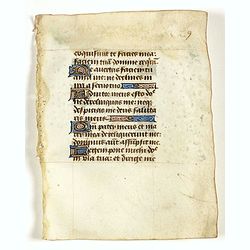 exquisiuit te facies mea:
faciem tuā domine requirā
Ne auertas faciem tuā
a me: ne declines in
ira a seruo tuo
Adiutor meus esto do
ne derelinquas me: neq
despicias me deus saluta
ris meus
Qm pater meus et ma
ter mea dereliquerunt me:
dominus aūt assūpsit me
Legem pone michi dn̄e
in via tua: et dirige me